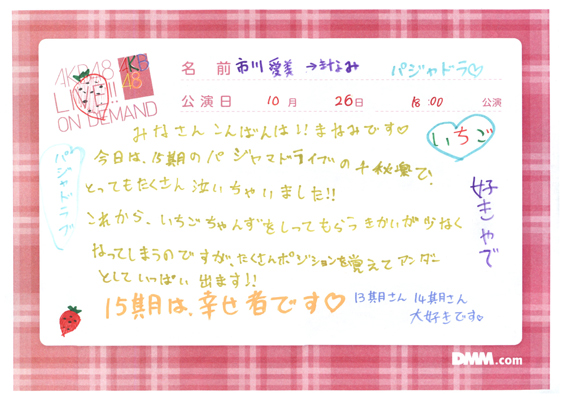 AKB48
LIVE!!
ON DEMAND
AKB
48
名 前 市川 愛美 →まなみ パジャドラ♡
公演日 10月 26日 18:00 公演
みなさんこんばんは!! まなみです♡
いちご
今日は、15期のパジャマドライブの千秋楽で、
とってもたくさん泣いちゃいました!!
これから、いちごちゃんずをしってもらうきかいが少なく
なってしまうのですが、たくさんポジションを覚えてアンダー
としていっぱい出ます!!
15期は、幸せ者です♡
13期さん 14期さん
大好きです♡
パジャドラ
好きやで
DMM.com